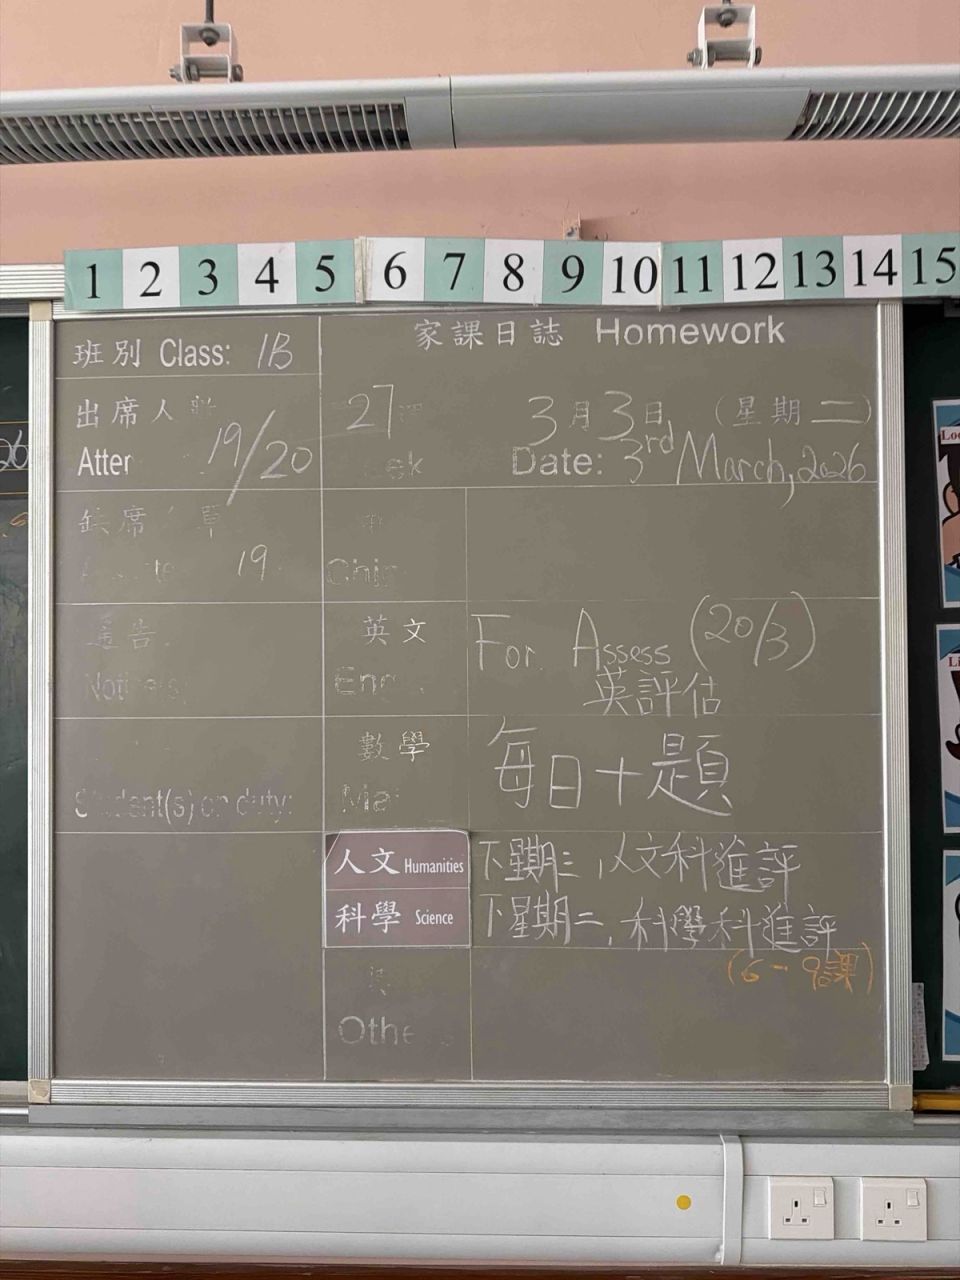 1 2 3 4 5 6 7 8 9 10 11 12 13 14 15
班別 Class: 1B
家課日誌 Homework
出席人數
19/20
27
3月3日 (星期二)
Date: 3rd March, 2026
席
19
告
英文
For Assess (20/3)
英評估
Student(s) on duty:
數學
每日十題
人文 Humanities
下星期三,人文科進評
科學 Science
下星期二,科學科進評
(6-9課)